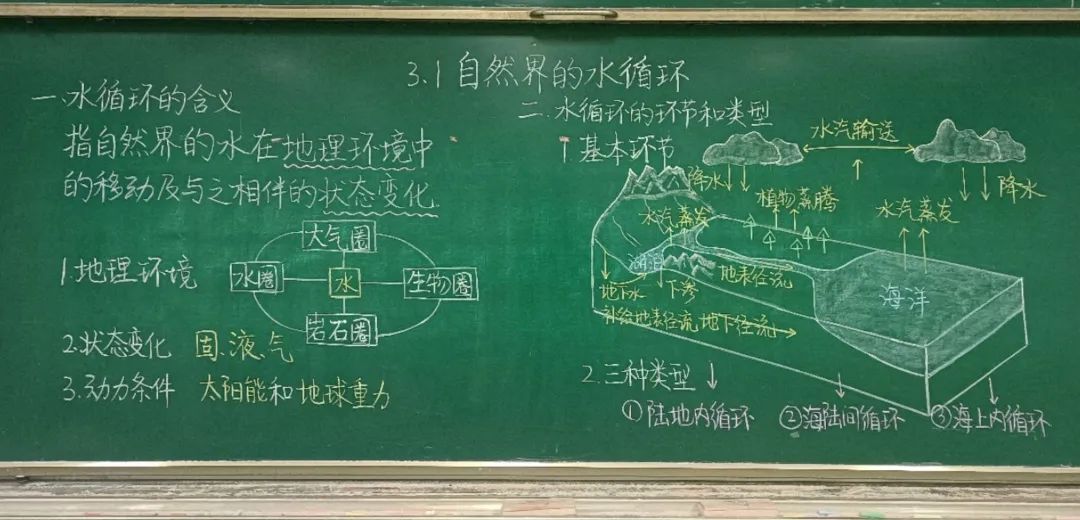 3.1自然界的水循环
一.水循环的含义
指自然界的水在地理环境中
的移动及与之相伴的状态变化.
1.地理环境
大气圈
水圈
水
生物圈
岩石圈
2.状态变化 固.液.气
3.动力条件 太阳能和地球重力
二.水循环的环节和类型
1.基本环节
水汽输送
降水
植物蒸腾
降水
水汽蒸发
水汽蒸发
湖泊
地表径流
海洋
地下水
下渗
补给地表径流
地下径流
2.三种类型
①陆地内循环 ②海陆间循环 ③海上内循环